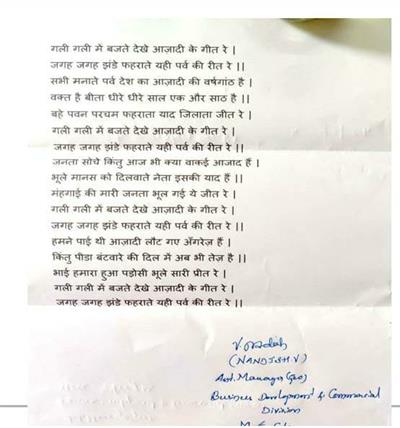 गली गली में बजते देखे आज़ादी के गीत रे |
जगह जगह झंडे फहराते यही पर्व की रीत रे ||
सभी मनाते पर्व देश का आज़ादी की वर्षगांठ है |
वक्त है बीता धीरे धीरे साल एक और साठ है ||
बहे पवन परचम फहराता याद जिलाता जीत रे |
गली गली में बजते देखे आज़ादी के गीत रे |
जगह जगह झंडे फहराते यही पर्व की रीत रे ||
जनता सोचे किंतु आज भी क्या वाकई आजाद हैं |
भूले मानस को दिलवाते नेता इसकी याद हैं ||
मंहगाई की मारी जनता भूल गई ये जीत रे |
गली गली में बजते देखे आज़ादी के गीत रे |
जगह जगह झंडे फहराते यही पर्व की रीत रे ||
हमने पाई थी आज़ादी लौट गए अँगरेज़ हैं |
किंतु पीडा बंटवारे की दिल में अब भी तेज़ है ||
भाई हमारा हुआ पड़ोसी भूले सारी प्रीत रे |
गली गली में बजते देखे आज़ादी के गीत रे |
जगह जगह झंडे फहराते यही पर्व की रीत रे ||
(NANDISH.V)
Asst. Manager
Business Development & Commercial
Division